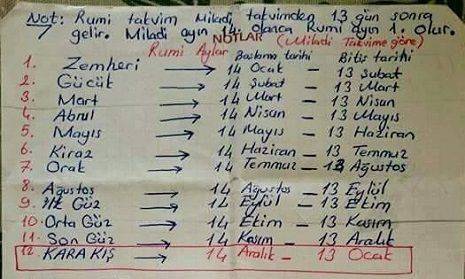 Not: Rumi takvim Miladi takvimden 13 gün sonra
gelir. Miladi ayın 14 olunca Rumi ayın 1. olur.
NOTLAR
Rumi Aylar (Miladi Takvime göre)
Başlama tarihi Bitiş tarihi
1. Zemheri → 14 Ocak - 13 Şubat
2. Gücük → 14 Şubat - 13 Mart
3. Mart → 14 Mart - 13 Nisan
4. Abrul → 14 Nisan - 13 Mayıs
5. Mayıs → 14 Mayıs - 13 Haziran
6. Kiraz → 14 Haziran - 13 Temmuz
7. Orak → 14 Temmuz - 13 Ağustos
8. Ağustos → 14 Ağustos - 13 Eylül
9. İlk Güz → 14 Eylül - 13 Ekim
10. Orta Güz → 14 Ekim - 13 Kasım
11. Son Güz → 14 Kasım - 13 Aralık
12. KARA KIŞ → 14 Aralık - 13 Ocak